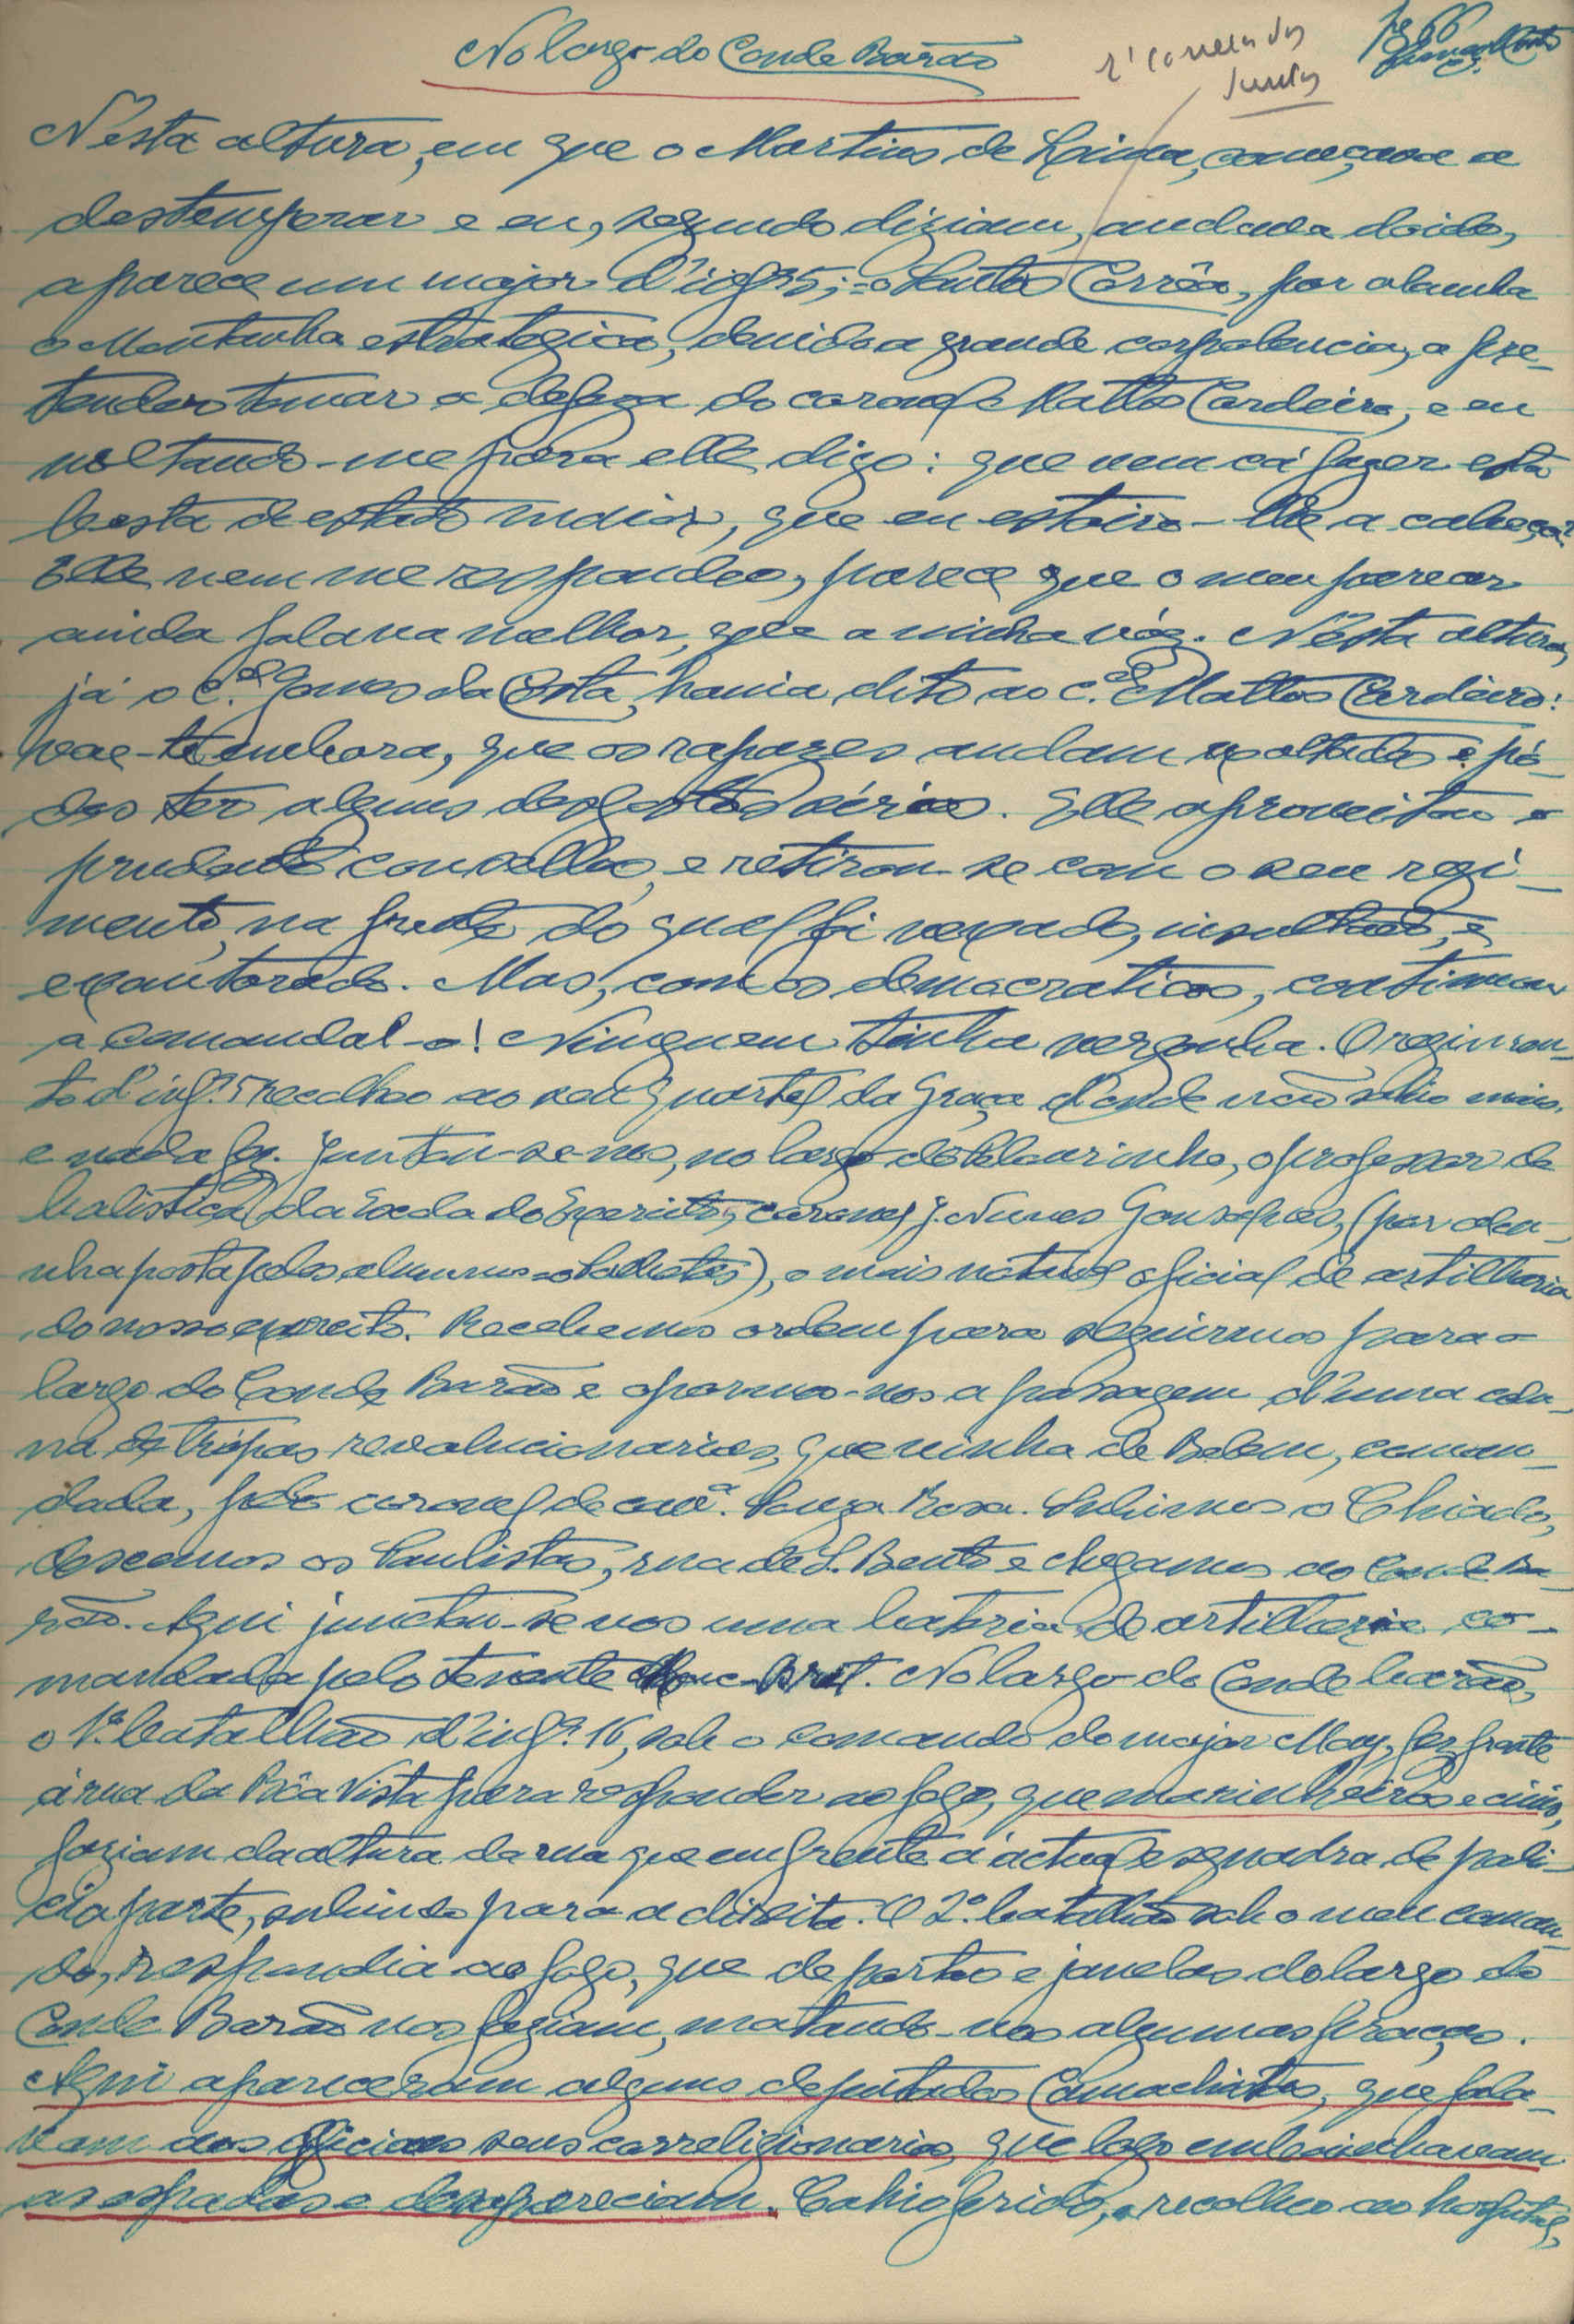 No largo do Conde Barão
Nésta altura, em que o Martins de Lima, começava a
destemperar e eu, segundo diziam, andava doido,
aparece um major d'inf.ª 5; = o Correia, por alcunha
o Montanha estrategica, devido a grande corpolencia, a pre-
tender tomar a defeza do coronel Mattos Cordeiro, e eu
voltando-me para elle digo: que vem cá fazer esta
besta de estado maior, que eu estoiro-lhe a cabeça?
Elle nem me respondeo, parece que o meu
ainda falava melhor, que a minha vóz. Nésta altura,
já o C.el Gomes da Costa, havia dito ao C.el Mattos Cordeiro:
vae-te embora, que os rapazes andam e pó-
des ter alguns desgostos sérios. Elle aproveitou o
prudente conselho, e retirou-se com o seu regi-
mento, na frente do qual foi vexado, insultado, e
exautorado. Mas, com os democraticos, continuou
a comandal-o! Ninguem tinha vergonha. O regimen-
to d'inf.ª 5 recolheo ao seu quartel da Graça d'onde não sahio mais,
e nada fez. Juntou-se-nos, no largo do Pelourinho, o professor de
balistica, da Escola do Exercito, coronel J. Nunes Gonsalves, (por alcu-
nha posta pelos alumnos = o ), o mais notavel oficial de artilharia
do nosso exercito. Recebemos ordem para seguirmos para o
largo do Conde Barão e opormo-nos a passagem d'uma colu-
na de trópas revolucionarias, que vinha de Belem, coman-
dada, pelo coronel de cav.ª Souza Rosa. Subimos o Chiado,
descemos os Paulistas, rua de S. Bento e chegamos ao Conde Ba-
rão. Aqui junctou-se nos uma bateria de artilheria co-
mandada pelo tenente. No largo do Conde barão,
o 1.º batalhão d'inf.ª 16, sob o comando do major May, fez frente
á rua da Bôa Vista para responder ao fogo, que marinheiros e civis,
faziam da altura da rua que em frente á actual esquadra de poli-
cia parte, subindo para a direita. O 2.º batalhão sob o meu coman-
do, respondia ao fogo, que de portas e janelas do largo do
Conde Barão nos faziam, matando-nos algumas praças.
Aqui apareceram alguns deputados Camachistas, que fala-
vam aos oficiaes seus correligionarios, que logo embainhavam
as espadas e desapareciam. Cahio ferido, e recolheo ao hospital,